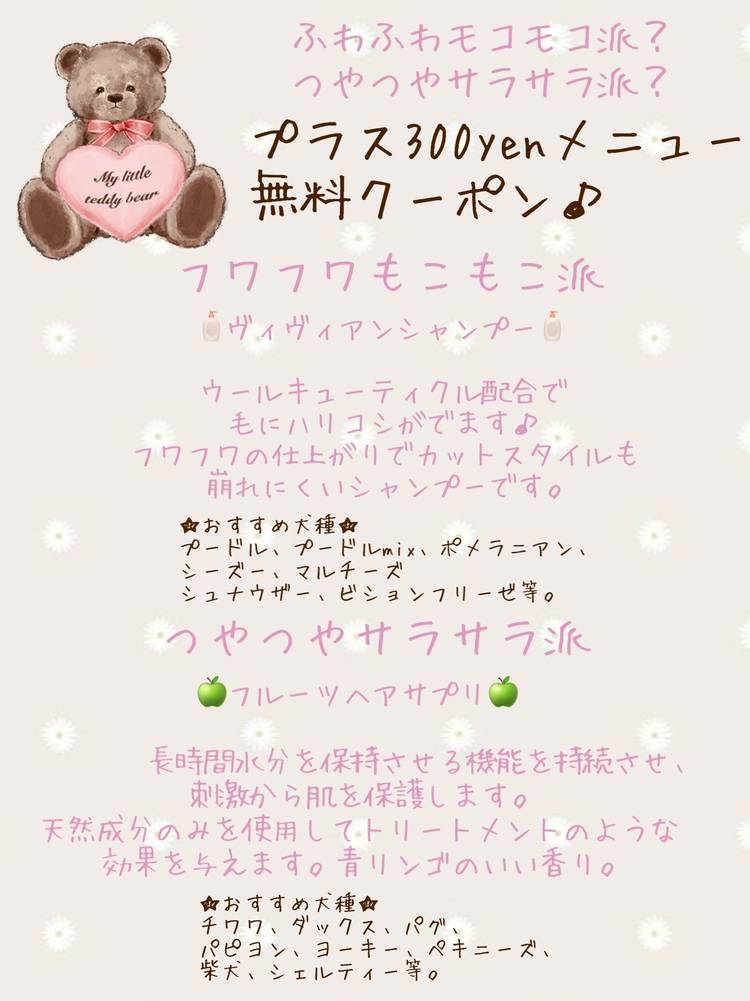 ふわふわモコモコ派？
つやつやサラサラ派？
プラス300yenメニュー
無料クーポン♪
My little
teddy bear
フワフワもこもこ派
ヴィヴィアンシャンプー
ウールキューティクル配合で
毛にハリコシがでます♪
フワフワの仕上がりでカットスタイルも
崩れにくいシャンプーです。
★おすすめ犬種★
プードル、プードルmix、ポメラニアン、
シーズー、マルチーズ
シュナウザー、ビションフリーゼ等。
つやつやサラサラ派
🍏フルーツヘアサプリ🍏
長時間水分を保持させる機能を持続させ、
刺激から肌を保護します。
天然成分のみを使用してトリートメントのような
効果を与えます。青リンゴのいい香り。
★おすすめ犬種★
チワワ、ダックス、パグ、
パピヨン、ヨーキー、ペキニーズ、
柴犬、シェルティー等。